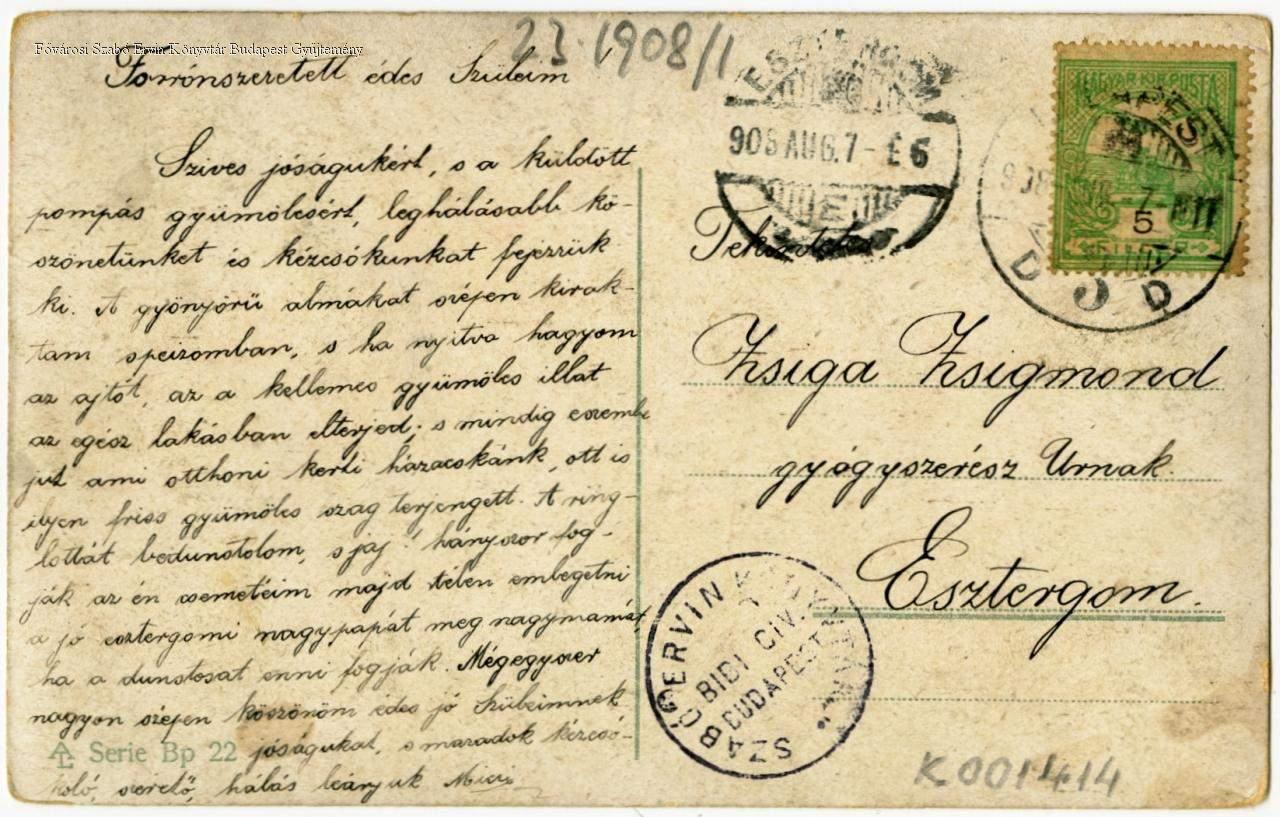 Fővárosi Szabó Ervin Könyvtár Budapest Gyűjtemény
23.1908/1
Forrónszeretett édes Szüleim
Szives jóságukért, s a küldött
pompás gyümölcsért, leghálásabb kö-
szönetünket és kézcsókunkat fejezzük
ki. A gyönyörü almákat szépen kirak-
tam speizomban, s ha nyitva hagyom
az ajtót, az a kellemes gyümölcs illat
az egész lakásban elterjed; s mindig eszembe
jut ami otthoni kerti házacskánk, ott is
ilyen friss gyümölcs szag terjengett. A ring-
lottát bedunstolom, s jaj! hányszor fog-
ják az én csemetéim majd télen emlegetni
a jó esztergomi nagypapát meg nagymamát,
ha a dunstosat enni fogják. Mégegyszer
nagyon szépen köszönöm édes jó Szüleimnek
jóságukat, s maradok kézcsó-
koló, szerető, hálás leányuk Mici
AL Serie Bp 22
ESZTERGOM
908 AUG. 7 - É 6
E
MAGYAR KIR. POSTA
5
FILLÉR
BUDAPEST
908
D 5 D
Zsiga Zsigmond
gyógyszerész Úrnak
Esztergom.
SZABÓ ERVIN KÖNYVTÁR
BIBI. CIV.
BUDAPEST
K 001414